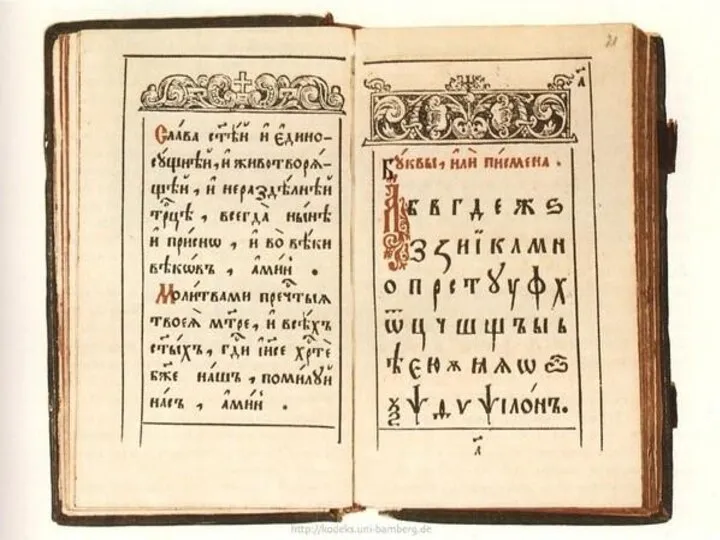 Сла́ва ст҃ѣ́й и҆ є҆дино-
сꙋ́щнѣй, и҆ животворѧ́-
щей, и҆ нераздѣ́лнѣй
трⷪ҇цѣ, всегда̀ ны́нѣ
и҆ при́снѡ, и҆ во вѣ́ки
вѣкѡ́въ, а҆ми́нь.
Моли́твами пречⷭ҇тыѧ
твоеѧ̀ мт҃ре, и҆ всѣ́хъ
ст҃ы́хъ, гдⷭ҇и і҆и҃се хрⷭ҇тѐ
бж҃е на́шъ, поми́лꙋй
на́съ, а҆ми́нь.
21
а҃
Бꙋквы, и҆лѝ писмена.
А б в г д е ж ѕ
з ʒ и ї к л м н
о п р с т ꙋ у ф х
ѿ ц ч ш щ ъ ы ь
ѣ є ю ѫ н ѧ ѡ ѽ
ѯ ѱ ѳ ѵ ѱїло́нъ.
а҃
http://kodeks.uni-bamberg.de